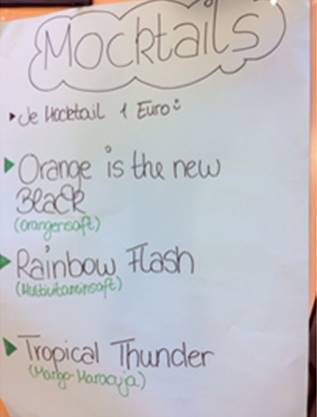 Mocktails
Je Mocktail 1 Euro
Orange is the new
Black
(Orangensaft)
Rainbow Flash
(Multivitaminsaft)
Tropical Thunder
(Mango-Maracuja)